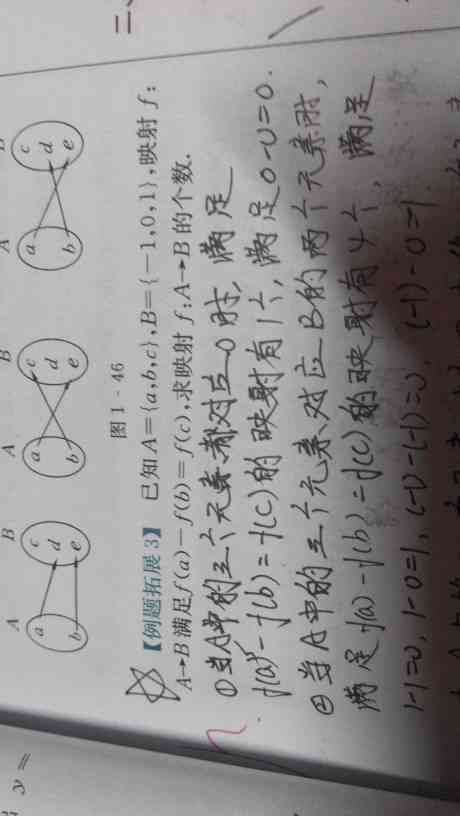 二、
A B A B A B
a b c d e a b c d e a b c d e
图1-46
【例题拓展3】 已知A={a,b,c},B={-1,0,1},映射f:
A→B满足f(a)-f(b)=f(c),求映射f:A→B的个数.
①当A中的三个元素都对应0时,满足
f(a)-f(b)=f(c)的映射有1个,满足0-0=0.
②当A中的三个元素对应B的两个元素时,
满足f(a)-f(b)=f(c)的映射有4个,满足
1-1=0,1-0=1,(-1)-(-1)=0,(-1)-0=-1.
y=